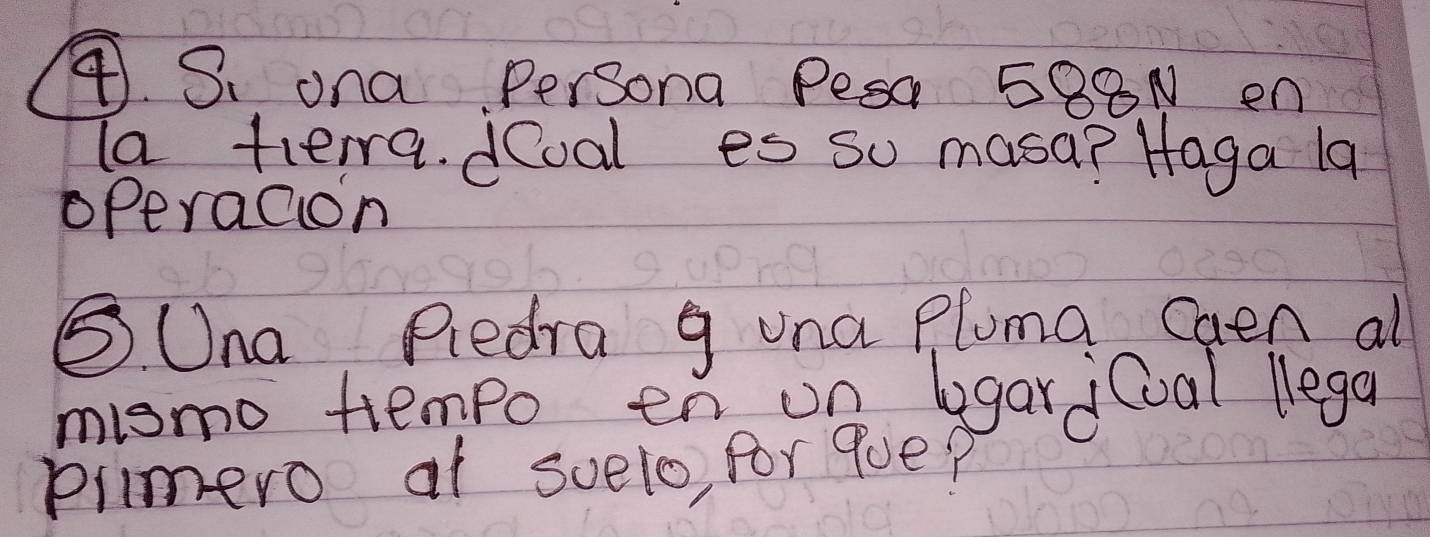 ④. Si una Persona Pesa 588N en
la tierra. ¿Cual es su masa? Haga la
operación
⑤. Una Piedra y una Pluma Caen al
mismo tiempo en un lugar ¿Cual llega
primero al suelo, Por que?